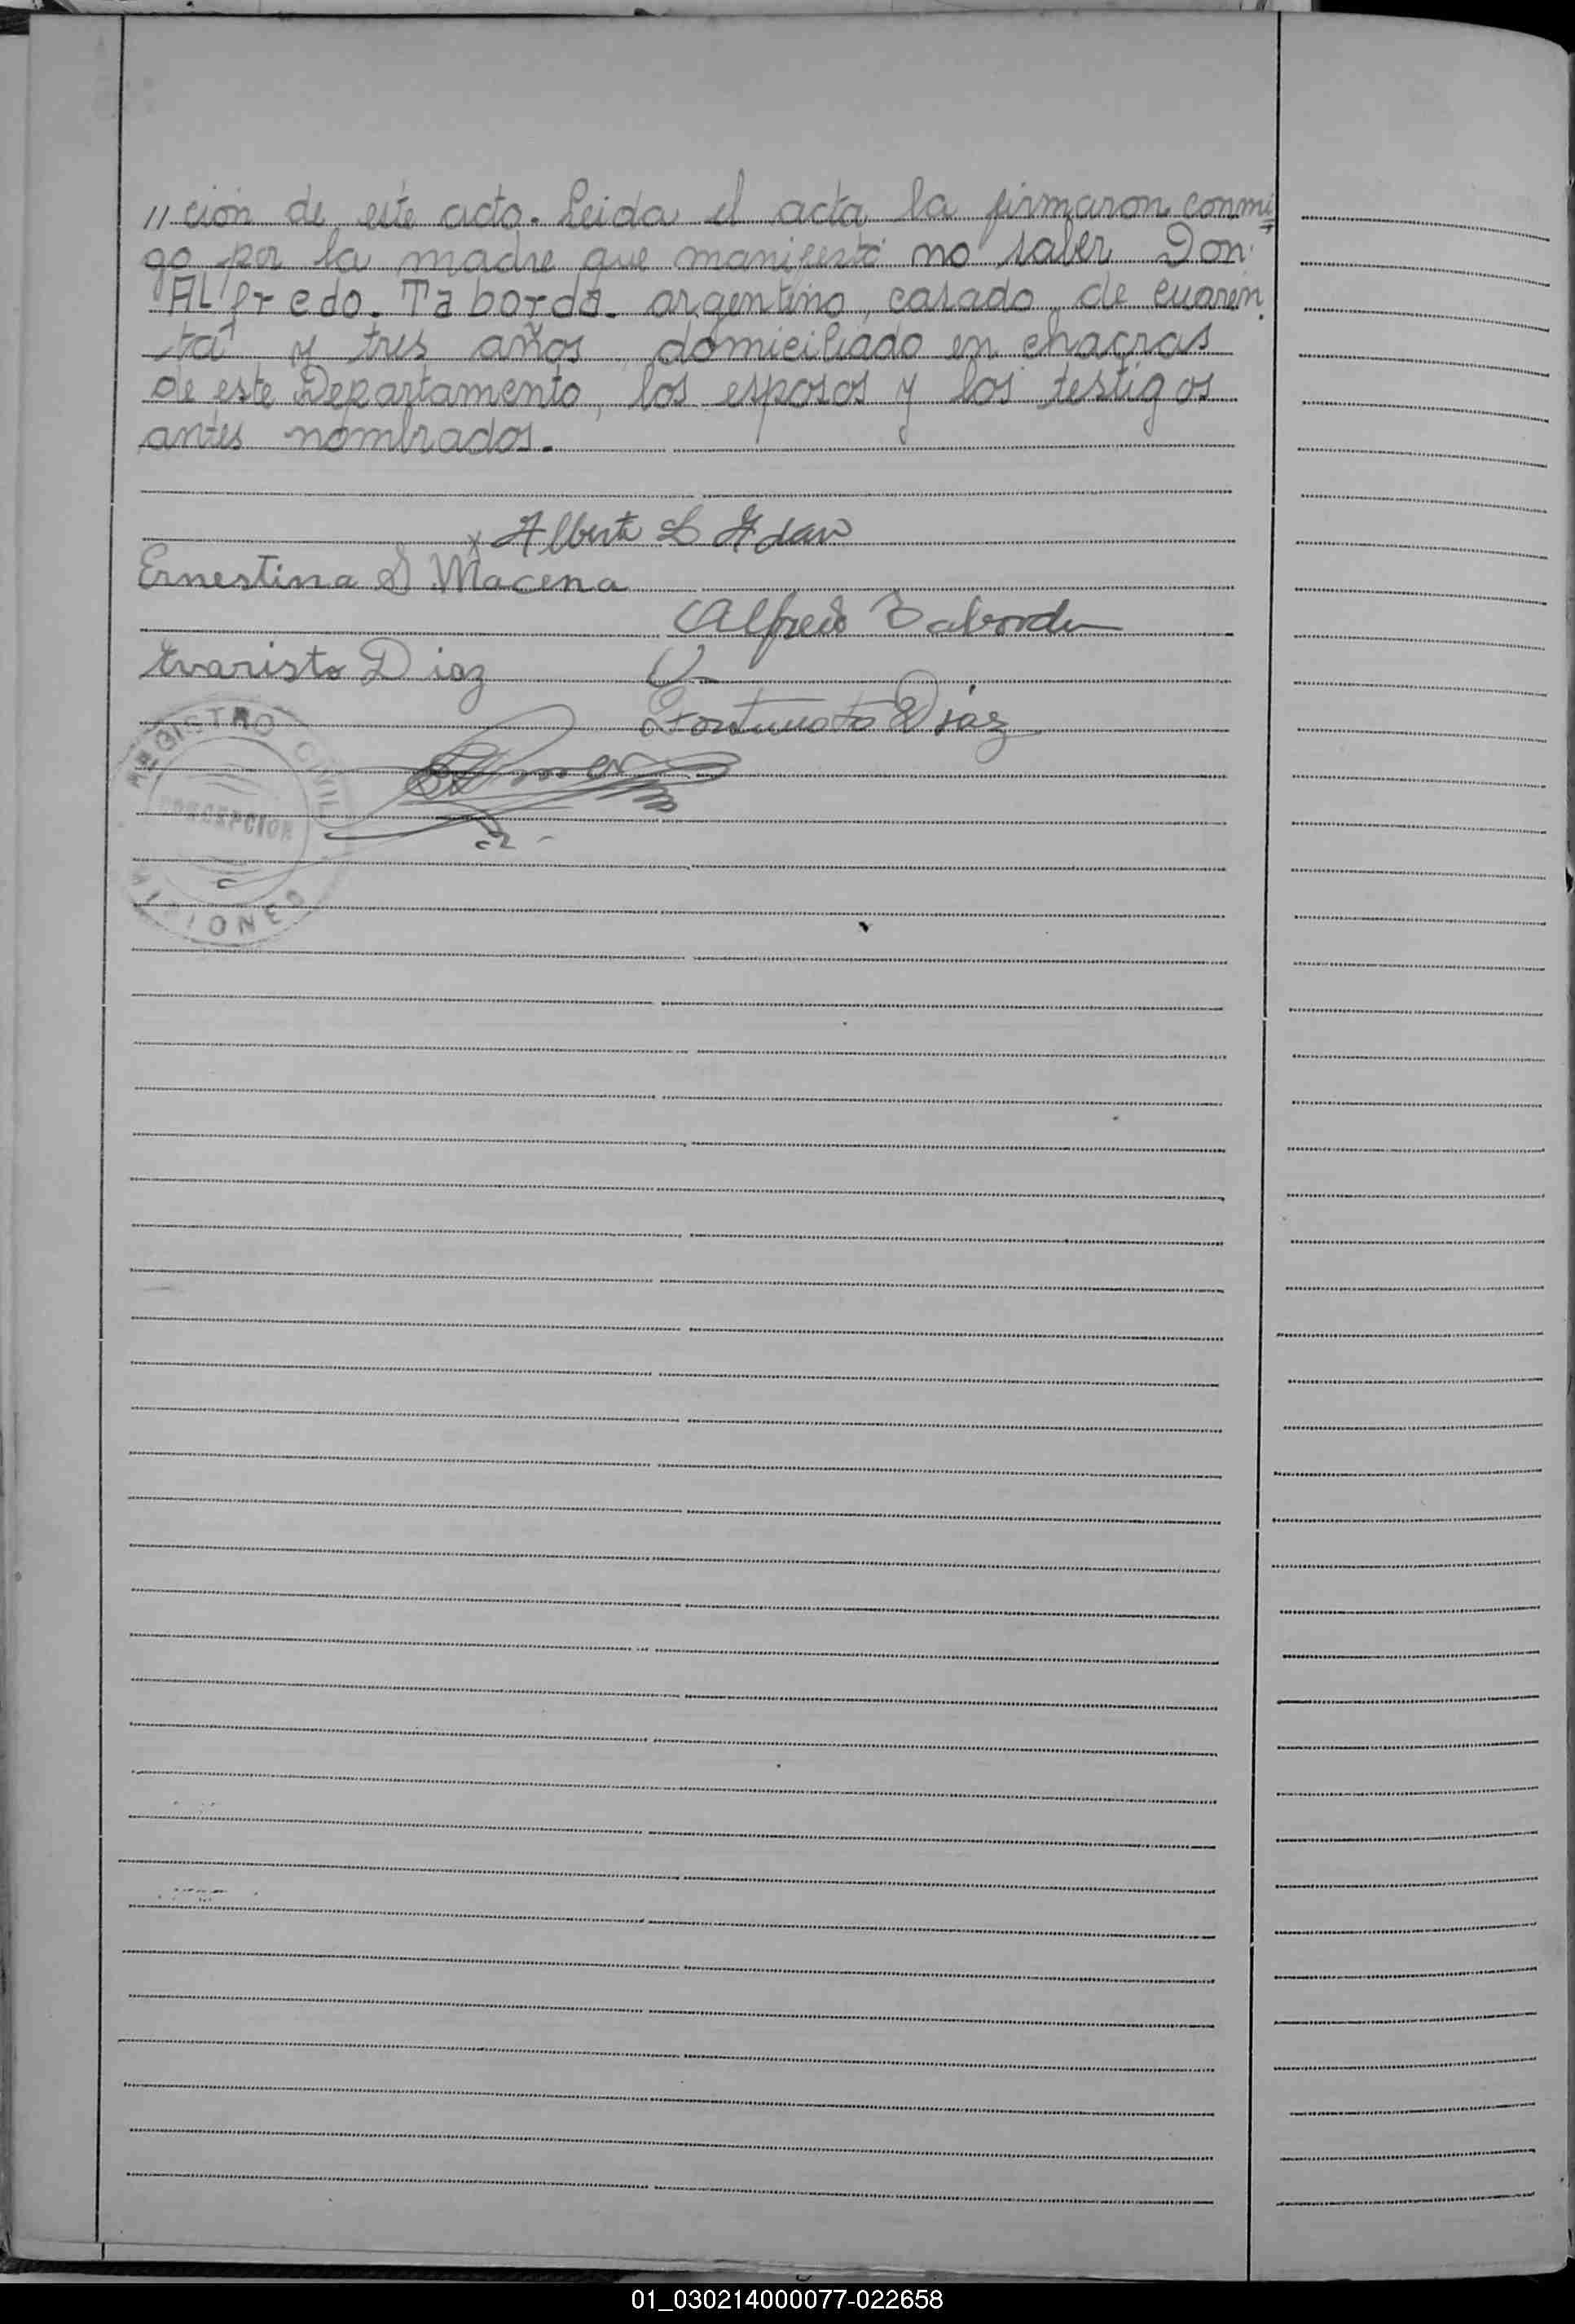 "ción de este acto. Leida el acta la firmaron conmi=
go por la madre que manifestó no saber Don
ALfredo. Taborda. argentino, casado, de cuaren
ta y tres años, domiciliado en chacras
de este Departamento, los esposos y los testigos
antes nombrados.
x Alberto L Adan
Ernestina S Macena
Alfredo Taborda
Evaristo Diaz
Fortunato Diaz
REGISTRO CIVIL
CONCEPCION
MISIONES
01_030214000077-022658